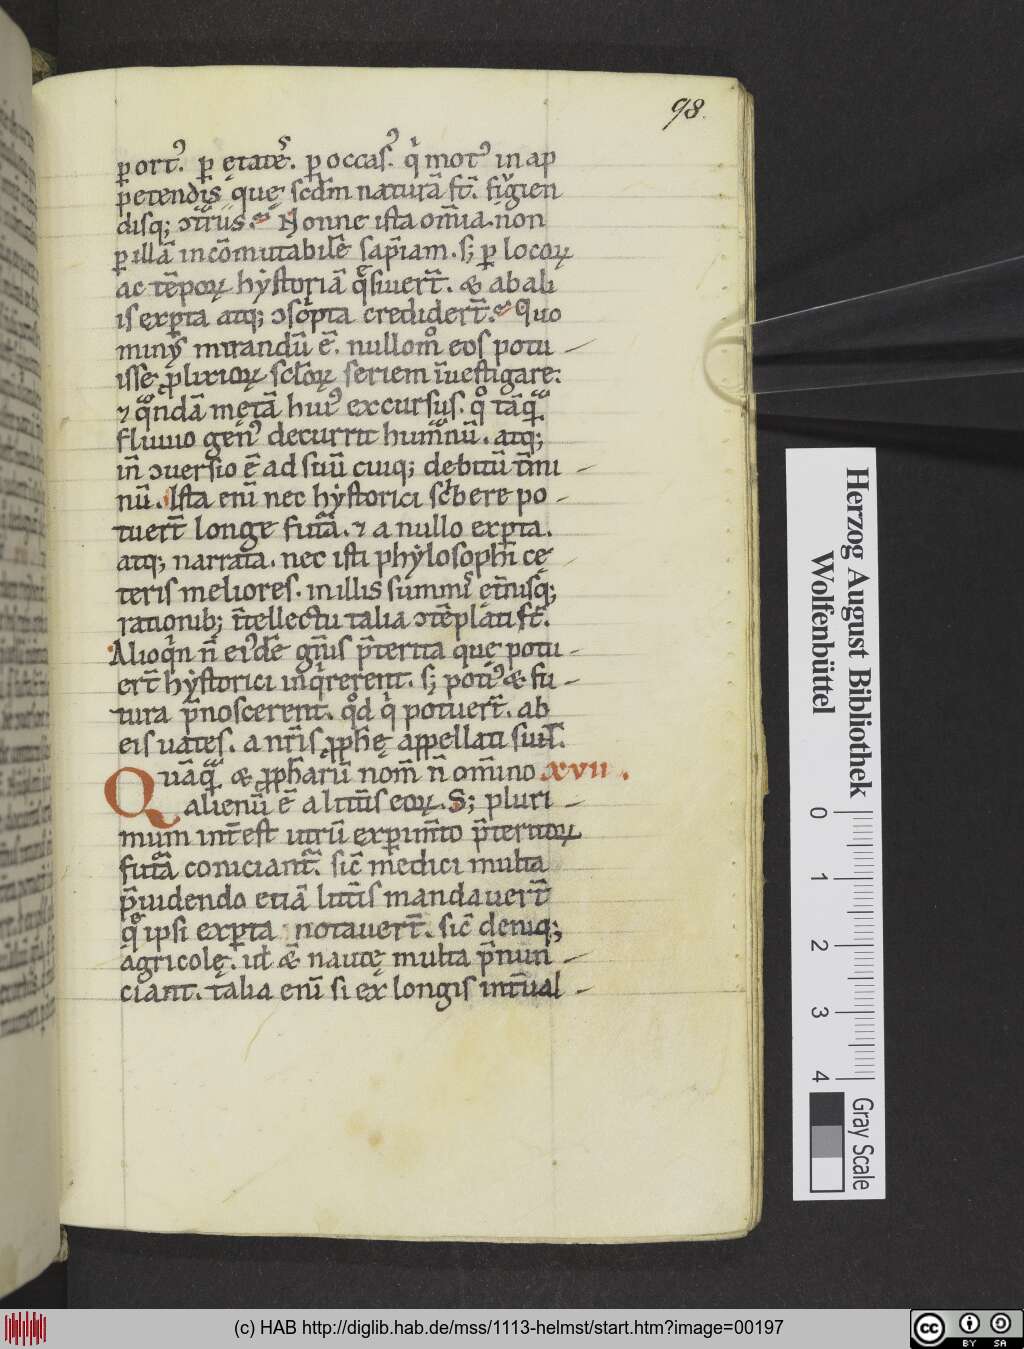 98.
ꝑ ortꝰ. ꝑ ętateᷤ. ꝑ occasꝰ. qͥ motꝰ in ap
petendis que scdm̄ naturā st̄. fugien
disq; ↄtͣriis. Nonne ista om̄ia. non
ꝑ illā incōmutabilē sap̄iam. s; ꝑ locoꝝ
ac tēpoꝝ hẏstoriā q̄siuerr̄t. & ab ali
is exꝑta atq; ↄscͥpta credider̄t. Quo
minꝰ mirandū ē. nullom̊ eos potu
isse ꝓlixioꝝ sclōꝝ seriem īuestigare.
⁊ qͣndā mętā huiꝰ excursus. qͦ tāqͣ
fluuio genꝰ decurrit humͣnū. atq;
in̄ ↄuersio ē ad suū cuiq; debitū t̄mi
nū. Ista enī nec hẏstorici scͥbere po
tuer̄t longe futͣa. ⁊ a nullo exꝑta.
atq; narrata. nec isti phẏlosophi cę
teris meliores. in illis summis et̄nisq;
rationib; īntellectu talia ↄtēplati st̄.
Alioqͥn n̄ eiꝰdē gn̄is p̄terita que potu
er̄t hẏstorici inqͥrerent. s; potiꝰ & fu
tura p̄noscerent. qͦd qͥ potuer̄t. ab
eis uates. a nr̄is ꝓph̄ę appellati sunt̄.
Quāqͣ & ꝓph̄arū nom̄ n̄ om̄ino xvii.
alienū ē a litt̄is eoꝝ. S; pluri
mum int̄est utrū exꝑim̄to p̄teritoꝝ
futͣa coniciant̄. sic̄ medici multa
p̄uidendo etiā litt̄is mandauer̄t
qͤ ipsi exꝑta notauer̄t. sic̄ deniq;
agricolę. ul̄ &̄ nautę multa p̄nun
ciant. talia enī si ex longis int̄ual
Herzog August Bibliothek
Wolfenbüttel
0 1 2 3 4
Gray Scale
(c) HAB http://diglib.hab.de/mss/1113-helmst/start.htm?image=00197
cc BY SA